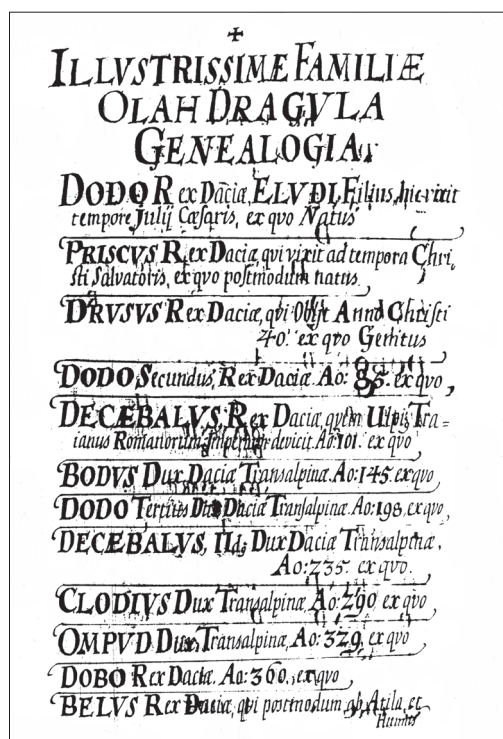 ILLVSTRISSIMÆ FAMILIÆ
OLAH DRAGVLA
GENEALOGIA.
DODO Rex Daciæ, ELVDI, Filius, hic vixit
tempore Julij Cæsaris, ex quo Natus
PRISCVS Rex Daciæ, qui vixit ad tempora Chri,
sti Salvatoris, ex quo postmodum natus.
DRVSVS Rex Daciæ, qvi Obijt Anno Christi
40. ex qvo Genitus
DODO, Secundus, Rex Daciæ. Ao: 85. ex qvo,
DECÆBALVS, Rex Daciæ, quem Ulpis Tra=
ianus Romanorum devicit Ao 101. ex quo
BODVS Dux Daciæ Transalpinæ. Ao: 145. ex quo
DODO Tertius Dux Daciæ Transalpinæ. Ao: 198, ex qvo,
DECÆBALVS, IIdg Dux Daciæ Transalpinæ,
Ao: 235. ex qvo.
CLODIVS Dux Transalpinæ, Ao: 290, ex qvo
OMPVD Dux, Transalpinæ, Ao: 329, ex qvo
DOBO Rex Daciæ. Ao: 360., ex qvo
BELVS Rex Daciæ, qui postmodum ab Atila, et
Hunnis